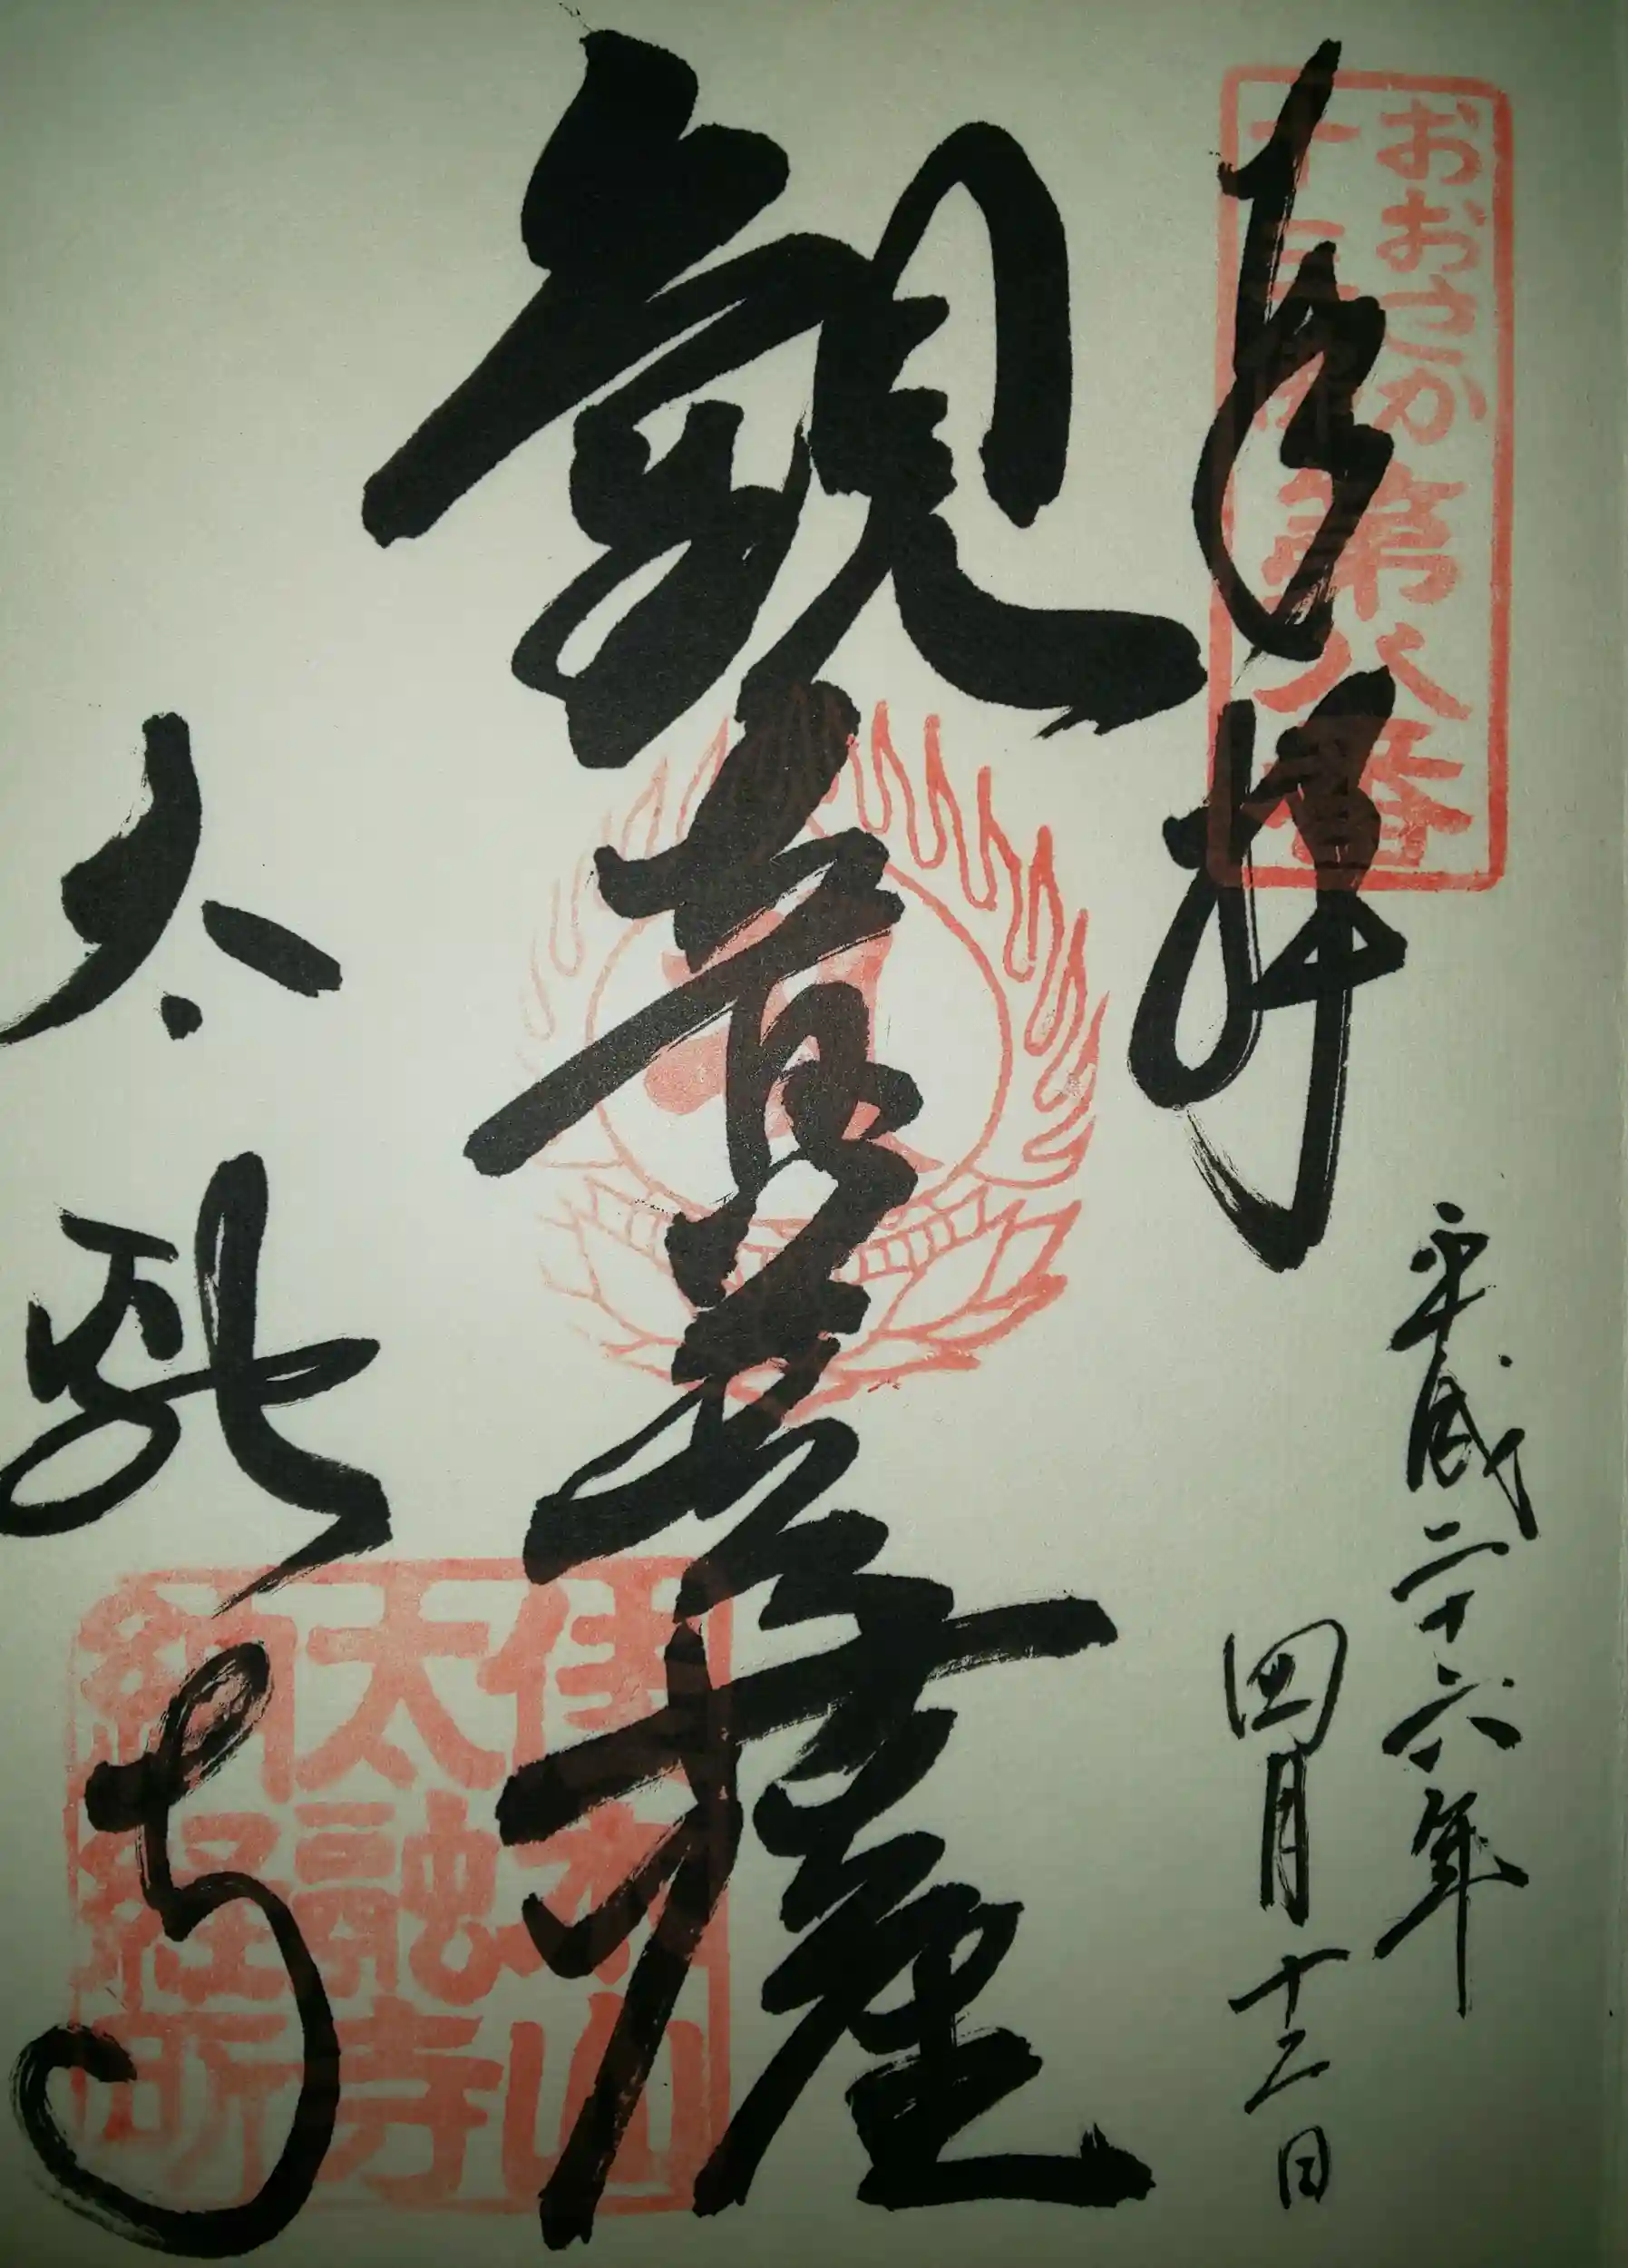 奉拝
おおさか
十三佛
第八番
平成二十六年
四月十二日
観音菩薩
太融寺
佳木山
太融寺
納経所